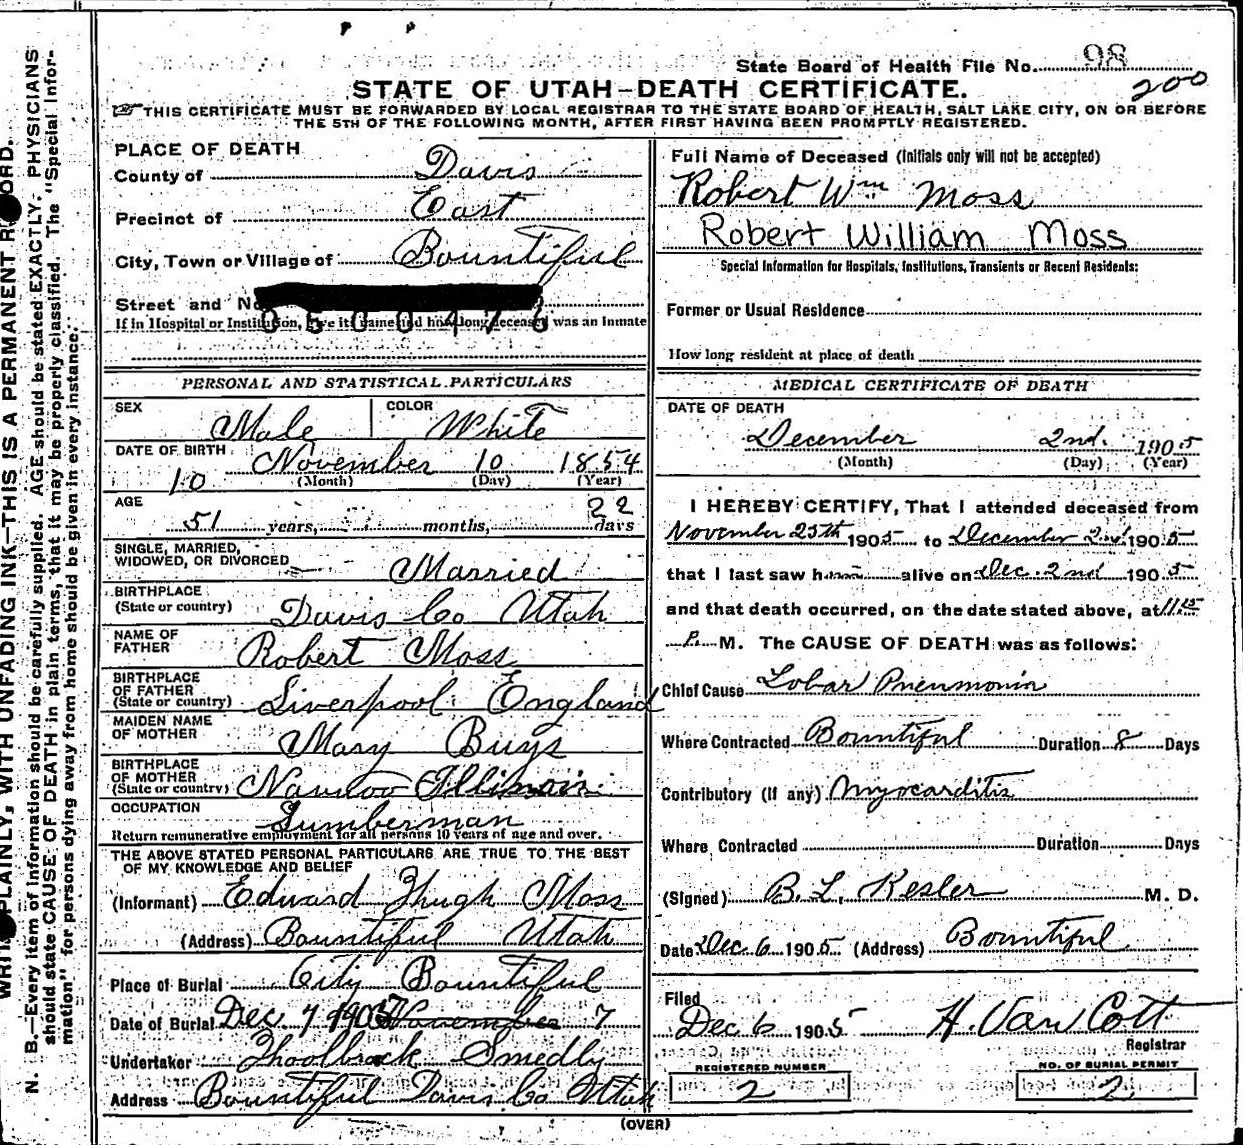 State Board of Health File No. 98
200
STATE OF UTAH—DEATH CERTIFICATE.
THIS CERTIFICATE MUST BE FORWARDED BY LOCAL REGISTRAR TO THE STATE BOARD OF HEALTH, SALT LAKE CITY, ON OR BEFORE
THE 5TH OF THE FOLLOWING MONTH, AFTER FIRST HAVING BEEN PROMPTLY REGISTERED.
PLACE OF DEATH
County of Davis
Precinct of East
City, Town or Village of Bountiful
Street and No
If in Hospital or Institution, give its name and how long deceased was an inmate
0500476
PERSONAL AND STATISTICAL PARTICULARS
SEX Male COLOR White
DATE OF BIRTH November 10 1854
10 (Month) (Day) (Year)
AGE 22
51 years, months, days
SINGLE, MARRIED,
WIDOWED, OR DIVORCED Married
BIRTHPLACE
(State or country) Davis Co Utah
NAME OF
FATHER Robert Moss
BIRTHPLACE
OF FATHER
(State or country) Liverpool England
MAIDEN NAME
OF MOTHER Mary Buys
BIRTHPLACE
OF MOTHER
(State or country) Nauvoo Illinois
OCCUPATION
Lumberman
Return remunerative employment for all persons 10 years of age and over.
THE ABOVE STATED PERSONAL PARTICULARS ARE TRUE TO THE BEST
OF MY KNOWLEDGE AND BELIEF
(Informant) Edward Hugh Moss
(Address) Bountiful Utah
Place of Burial City Bountiful
Date of Burial Dec 7 1905 November 7
Undertaker Smedly
Address Bountiful Davis Co Utah
Full Name of Deceased (Initials only will not be accepted)
Robert Wm Moss
Robert William Moss
Special Information for Hospitals, Institutions, Transients or Recent Residents:
Former or Usual Residence
How long resident at place of death
MEDICAL CERTIFICATE OF DEATH
DATE OF DEATH
December 2nd. 1905
(Month) (Day) (Year)
I HEREBY CERTIFY, That I attended deceased from
November 25th 1905 to December 2nd 1905
that I last saw h alive on Dec. 2nd 1905
and that death occurred, on the date stated above, at 11.15
P. M. The CAUSE OF DEATH was as follows:
Chief Cause Lobar Pneumonia
Where Contracted Bountiful Duration 8 Days
Contributory (If any) Myocarditis
Where Contracted Duration Days
(Signed) B. L. Kesler M. D.
Date Dec 6 1905 (Address) Bountiful
Filed
Dec 6 1905 H. Van Cott
Registrar
REGISTERED NUMBER
2
NO. OF BURIAL PERMIT
2
(OVER)
WRITE PLAINLY, WITH UNFADING INK—THIS IS A PERMANENT RECORD.
N. B.—Every item of information should be carefully supplied. AGE should be stated EXACTLY. PHYSICIANS
should state CAUSE OF DEATH in plain terms, that it may be properly classified. The "Special Infor-
mation" for persons dying away from home should be given in every instance.